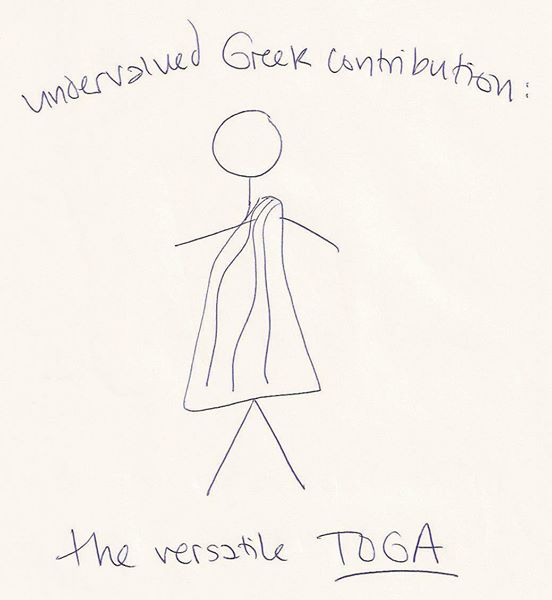 undervalued Greek contribution:
the versatile TOGA